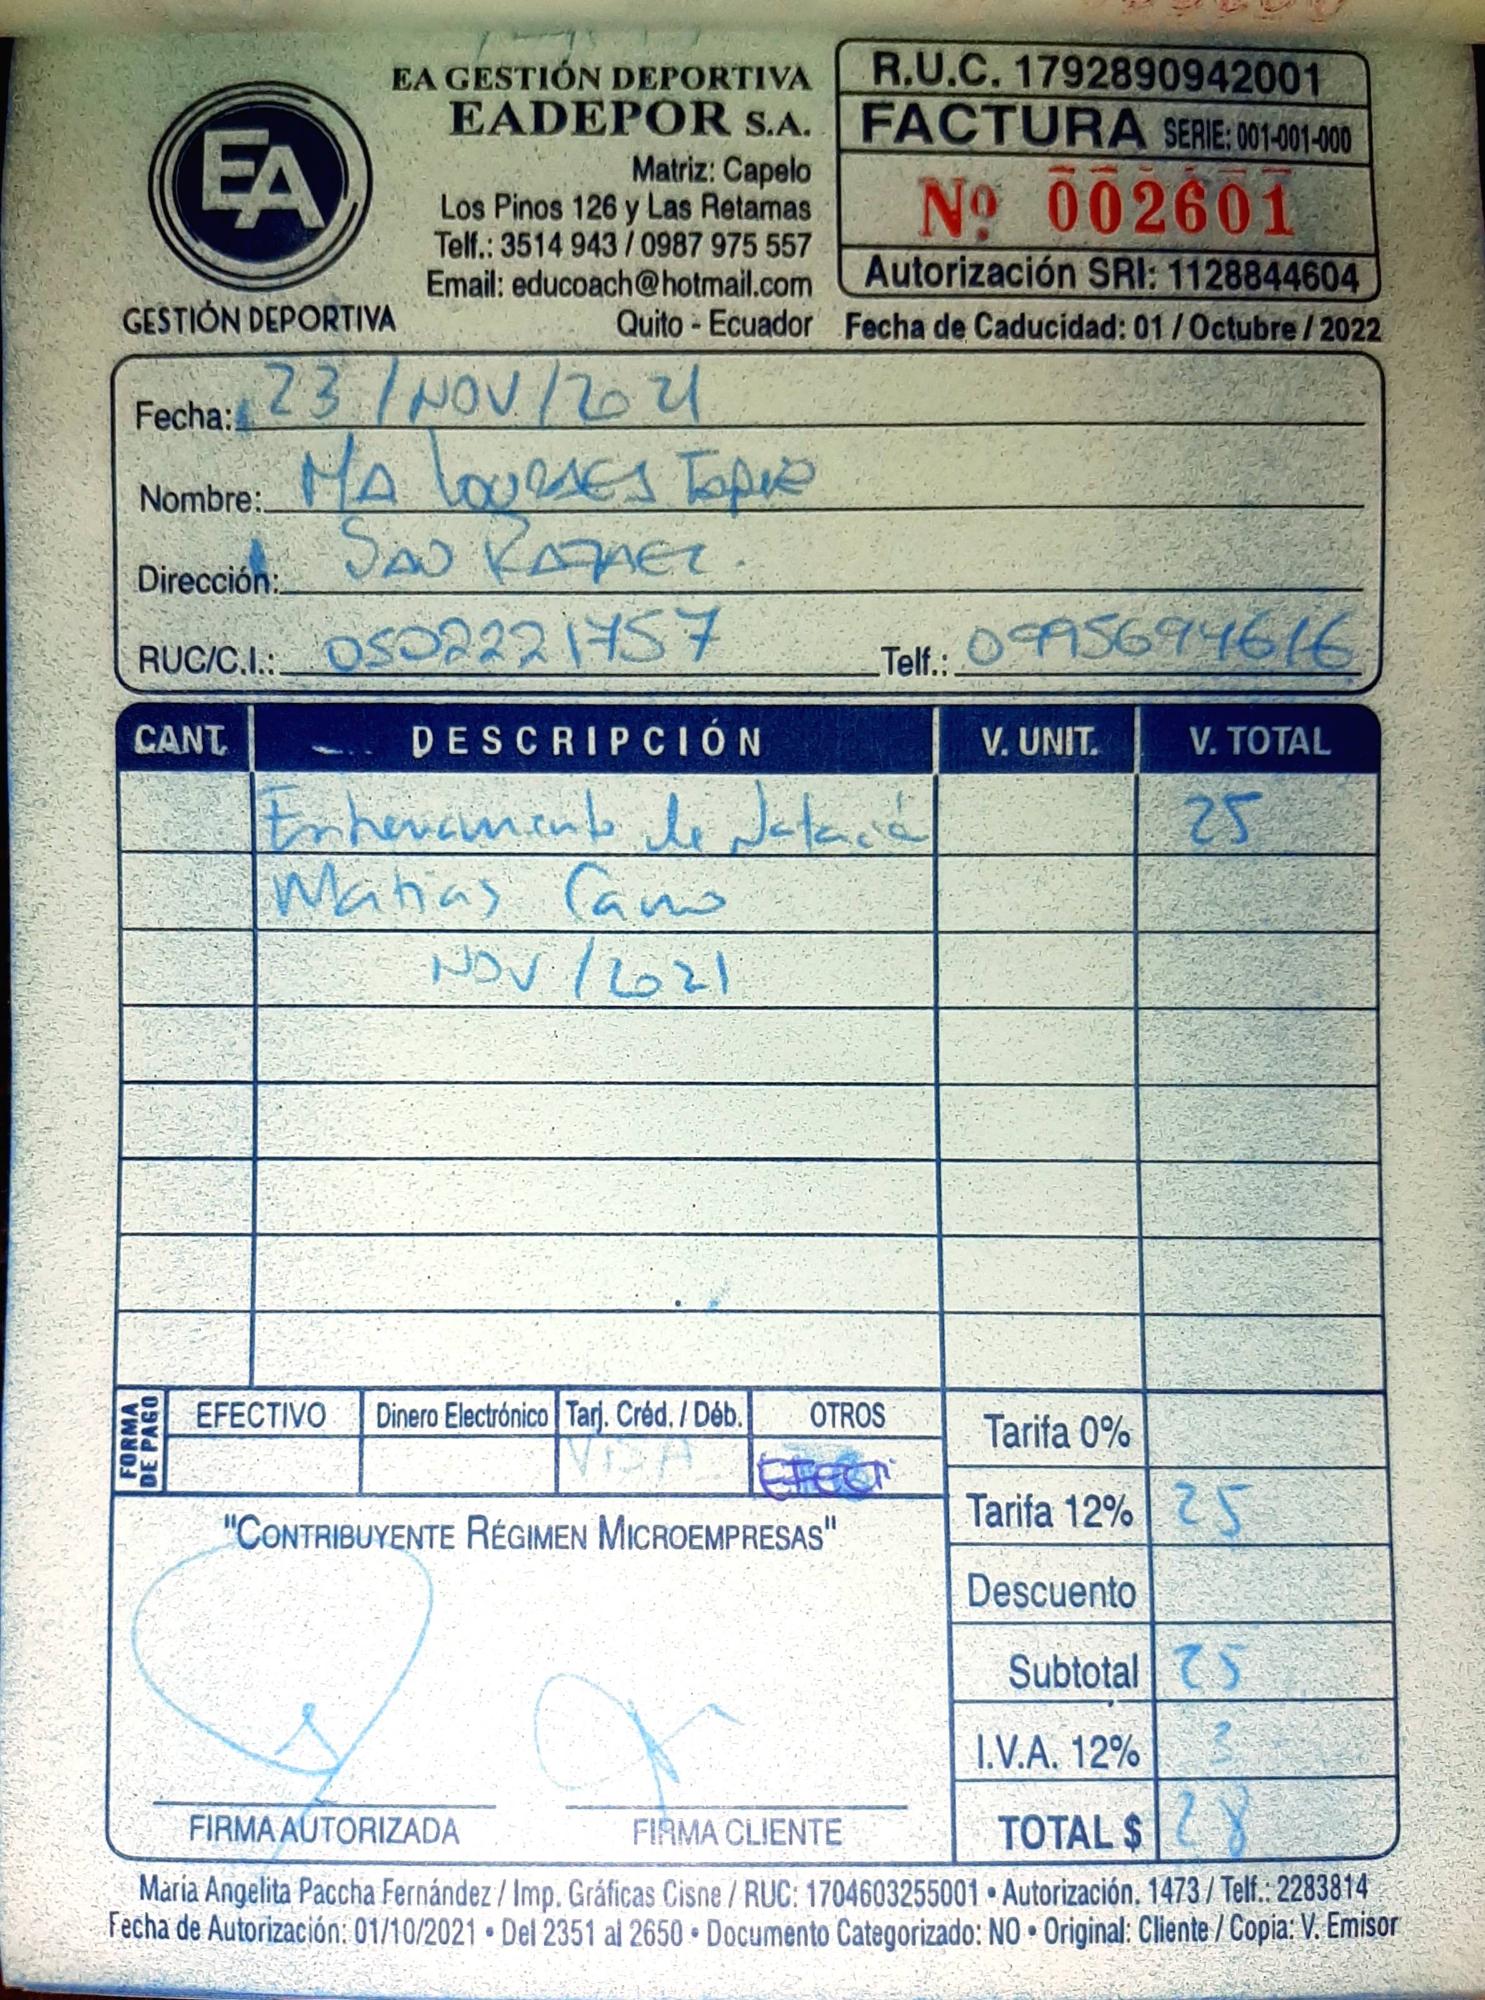 EA GESTIÓN DEPORTIVA
EADEPOR S.A.
Matriz: Capelo
Los Pinos 126 y Las Retamas
Telf.: 3514 943 / 0987 975 557
Email: educoach@hotmail.com
Quito - Ecuador
EA
GESTIÓN DEPORTIVA
R.U.C. 1792890942001
FACTURA SERIE: 001-001-000
Nº 002601
Autorización SRI: 1128844604
Fecha de Caducidad: 01 / Octubre / 2022
Fecha: 23 / NOV / 2021
Nombre: MA LOURDES Tapia
Dirección: SAN RAFAEL.
RUC/C.I.: 0502221757 Telf.: 0995694616
CANT. DESCRIPCIÓN V. UNIT. V. TOTAL
Entrenamiento de Natació 25
Matias Cano
NOV / 2021
FORMA DE PAGO
EFECTIVO Dinero Electrónico Tarj. Créd. / Déb. OTROS
VISA EFECT
Tarifa 0%
Tarifa 12% 25
Descuento
Subtotal 25
I.V.A. 12% 3
TOTAL $ 28
"CONTRIBUYENTE RÉGIMEN MICROEMPRESAS"
FIRMA AUTORIZADA FIRMA CLIENTE
María Angelita Paccha Fernández / Imp. Gráficas Cisne / RUC: 1704603255001 • Autorización. 1473 / Telf.: 2283814
Fecha de Autorización: 01/10/2021 • Del 2351 al 2650 • Documento Categorizado: NO • Original: Cliente / Copia: V. Emisor